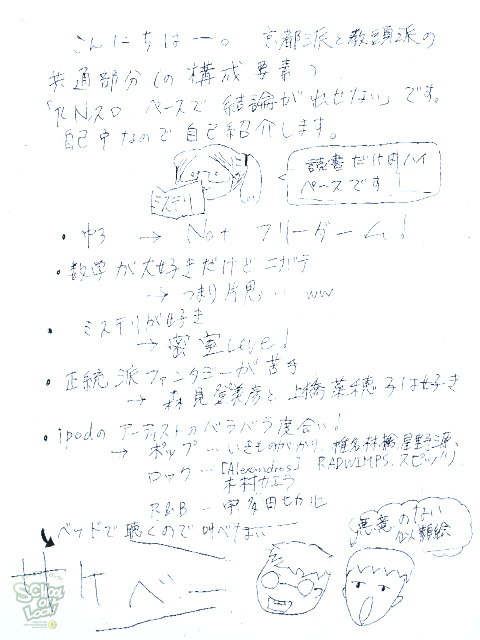 こんにちはー。 京都派と教頭派の
共通部分(の構成要素)
「RN,スロ ペースで 結論が出せない」です。
自己中なので自己紹介します。
読書だけはハイ
ペースです
ミステリ
・中3 → Not フリーダーム!
・数学が大好きだけどニガテ
→ つまり片思い ww
・ミステリが好き
→ 密室Love!
・正統派ファンタジーが苦手
→ 森見登美彦と上橋菜穂子は好き
・ipodのアーティストのバラバラ度合い!
→ ポップ…いきものがかり、椎名林檎、星野源、
ロック…[Alexandros] RADWIMPS、スピッツ、
木村カエラ
R&B ー 宇多田ヒカル
ベッドで聴くので叫べない
悪意のない
似顔絵
サけべー
SCHOOL
OF
LOCK!